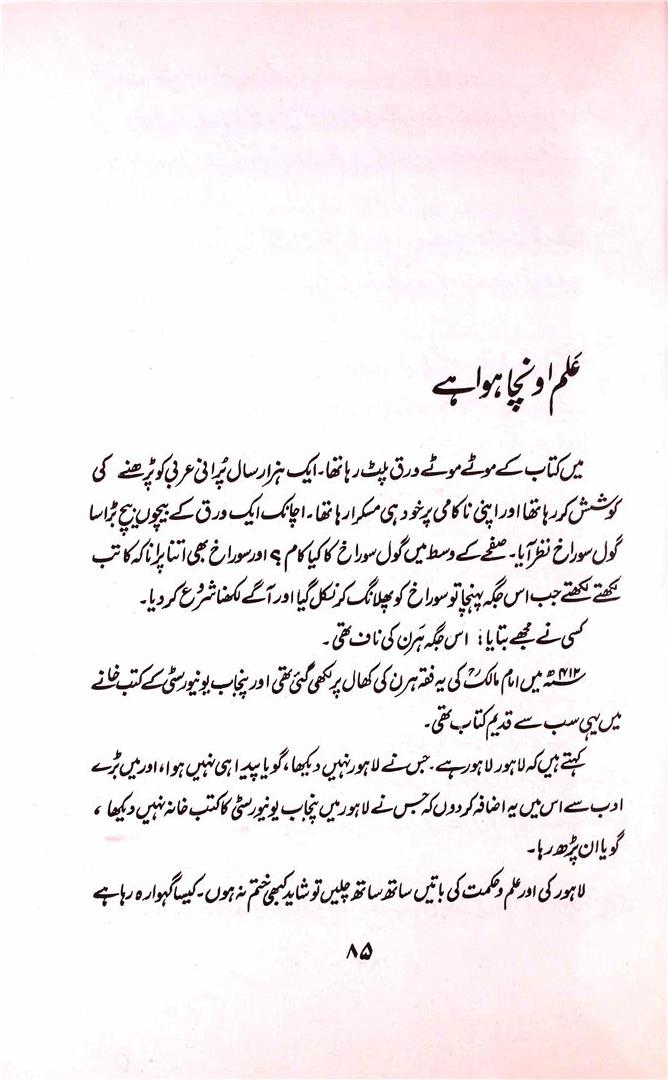 عَلم اونچا ہوا ہے
میں کتاب کے موٹے موٹے ورق پلٹ رہا تھا۔ ایک ہزار سال پُرانی عربی کو پڑھنے کی
کوشش کر رہا تھا اور اپنی ناکامی پر خود ہی مسکرا رہا تھا۔ اچانک ایک ورق کے بیچوں بیچ بڑا سا
گول سوراخ نظر آیا۔ صفحے کے وسط میں گول سوراخ کا کیا کام؟ اور سوراخ بھی اتنا پرانا کہ کاتب
لکھتے لکھتے جب اس جگہ پہنچا تو سوراخ کو پھلانگ کر نکل گیا اور آگے لکھنا شروع کر دیا۔
کسی نے مجھے بتایا: اس جگہ ہَرن کی ناف تھی۔
۴۱۲ھ میں امام مالکؒ کی یہ فقہ ہرن کی کھال پر لکھی گئی تھی اور پنجاب یونیورسٹی کے کتب خانے
میں یہی سب سے قدیم کتاب تھی۔
کہتے ہیں کہ لاہور لاہور ہے۔ جس نے لاہور نہیں دیکھا، گویا پیدا ہی نہیں ہوا، اور میں بڑے
ادب سے اس میں یہ اضافہ کردوں کہ جس نے لاہور میں پنجاب یونیورسٹی کا کتب خانہ نہیں دیکھا،
گویا ان پڑھ رہا۔
لاہور کی اور علم و حکمت کی باتیں ساتھ ساتھ چلیں تو شاید کبھی ختم نہ ہوں۔ کیسا گہوارہ رہا ہے
۸۵